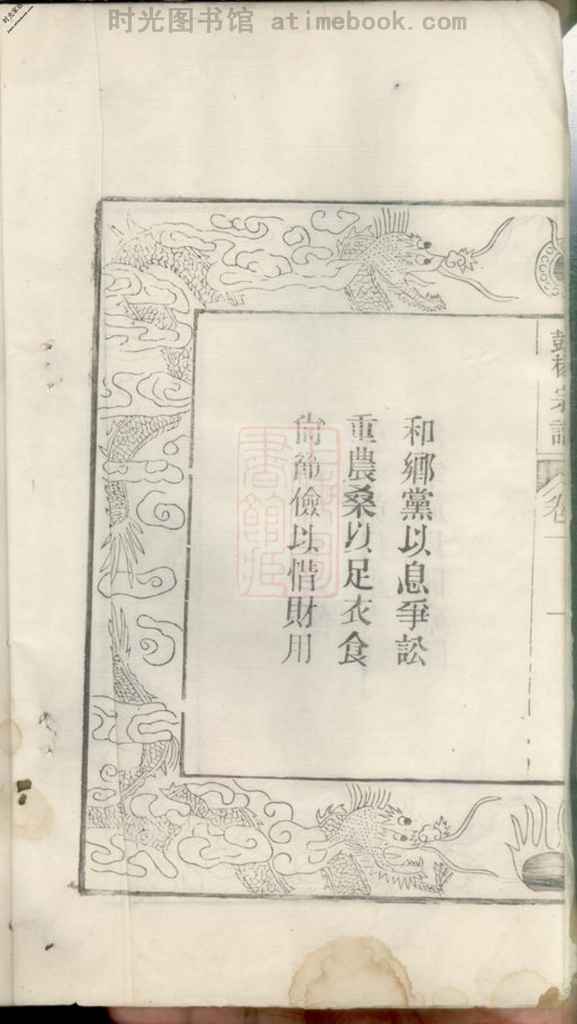 时光图书馆 atimebook.com
和鄉黨以息爭訟
重農桑以足衣食
尙節儉以惜財用
卷一